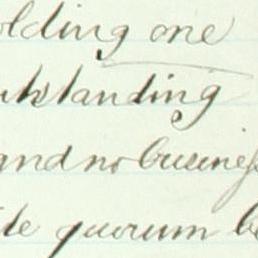 olding one
utstanding
and no busines
de quorum be